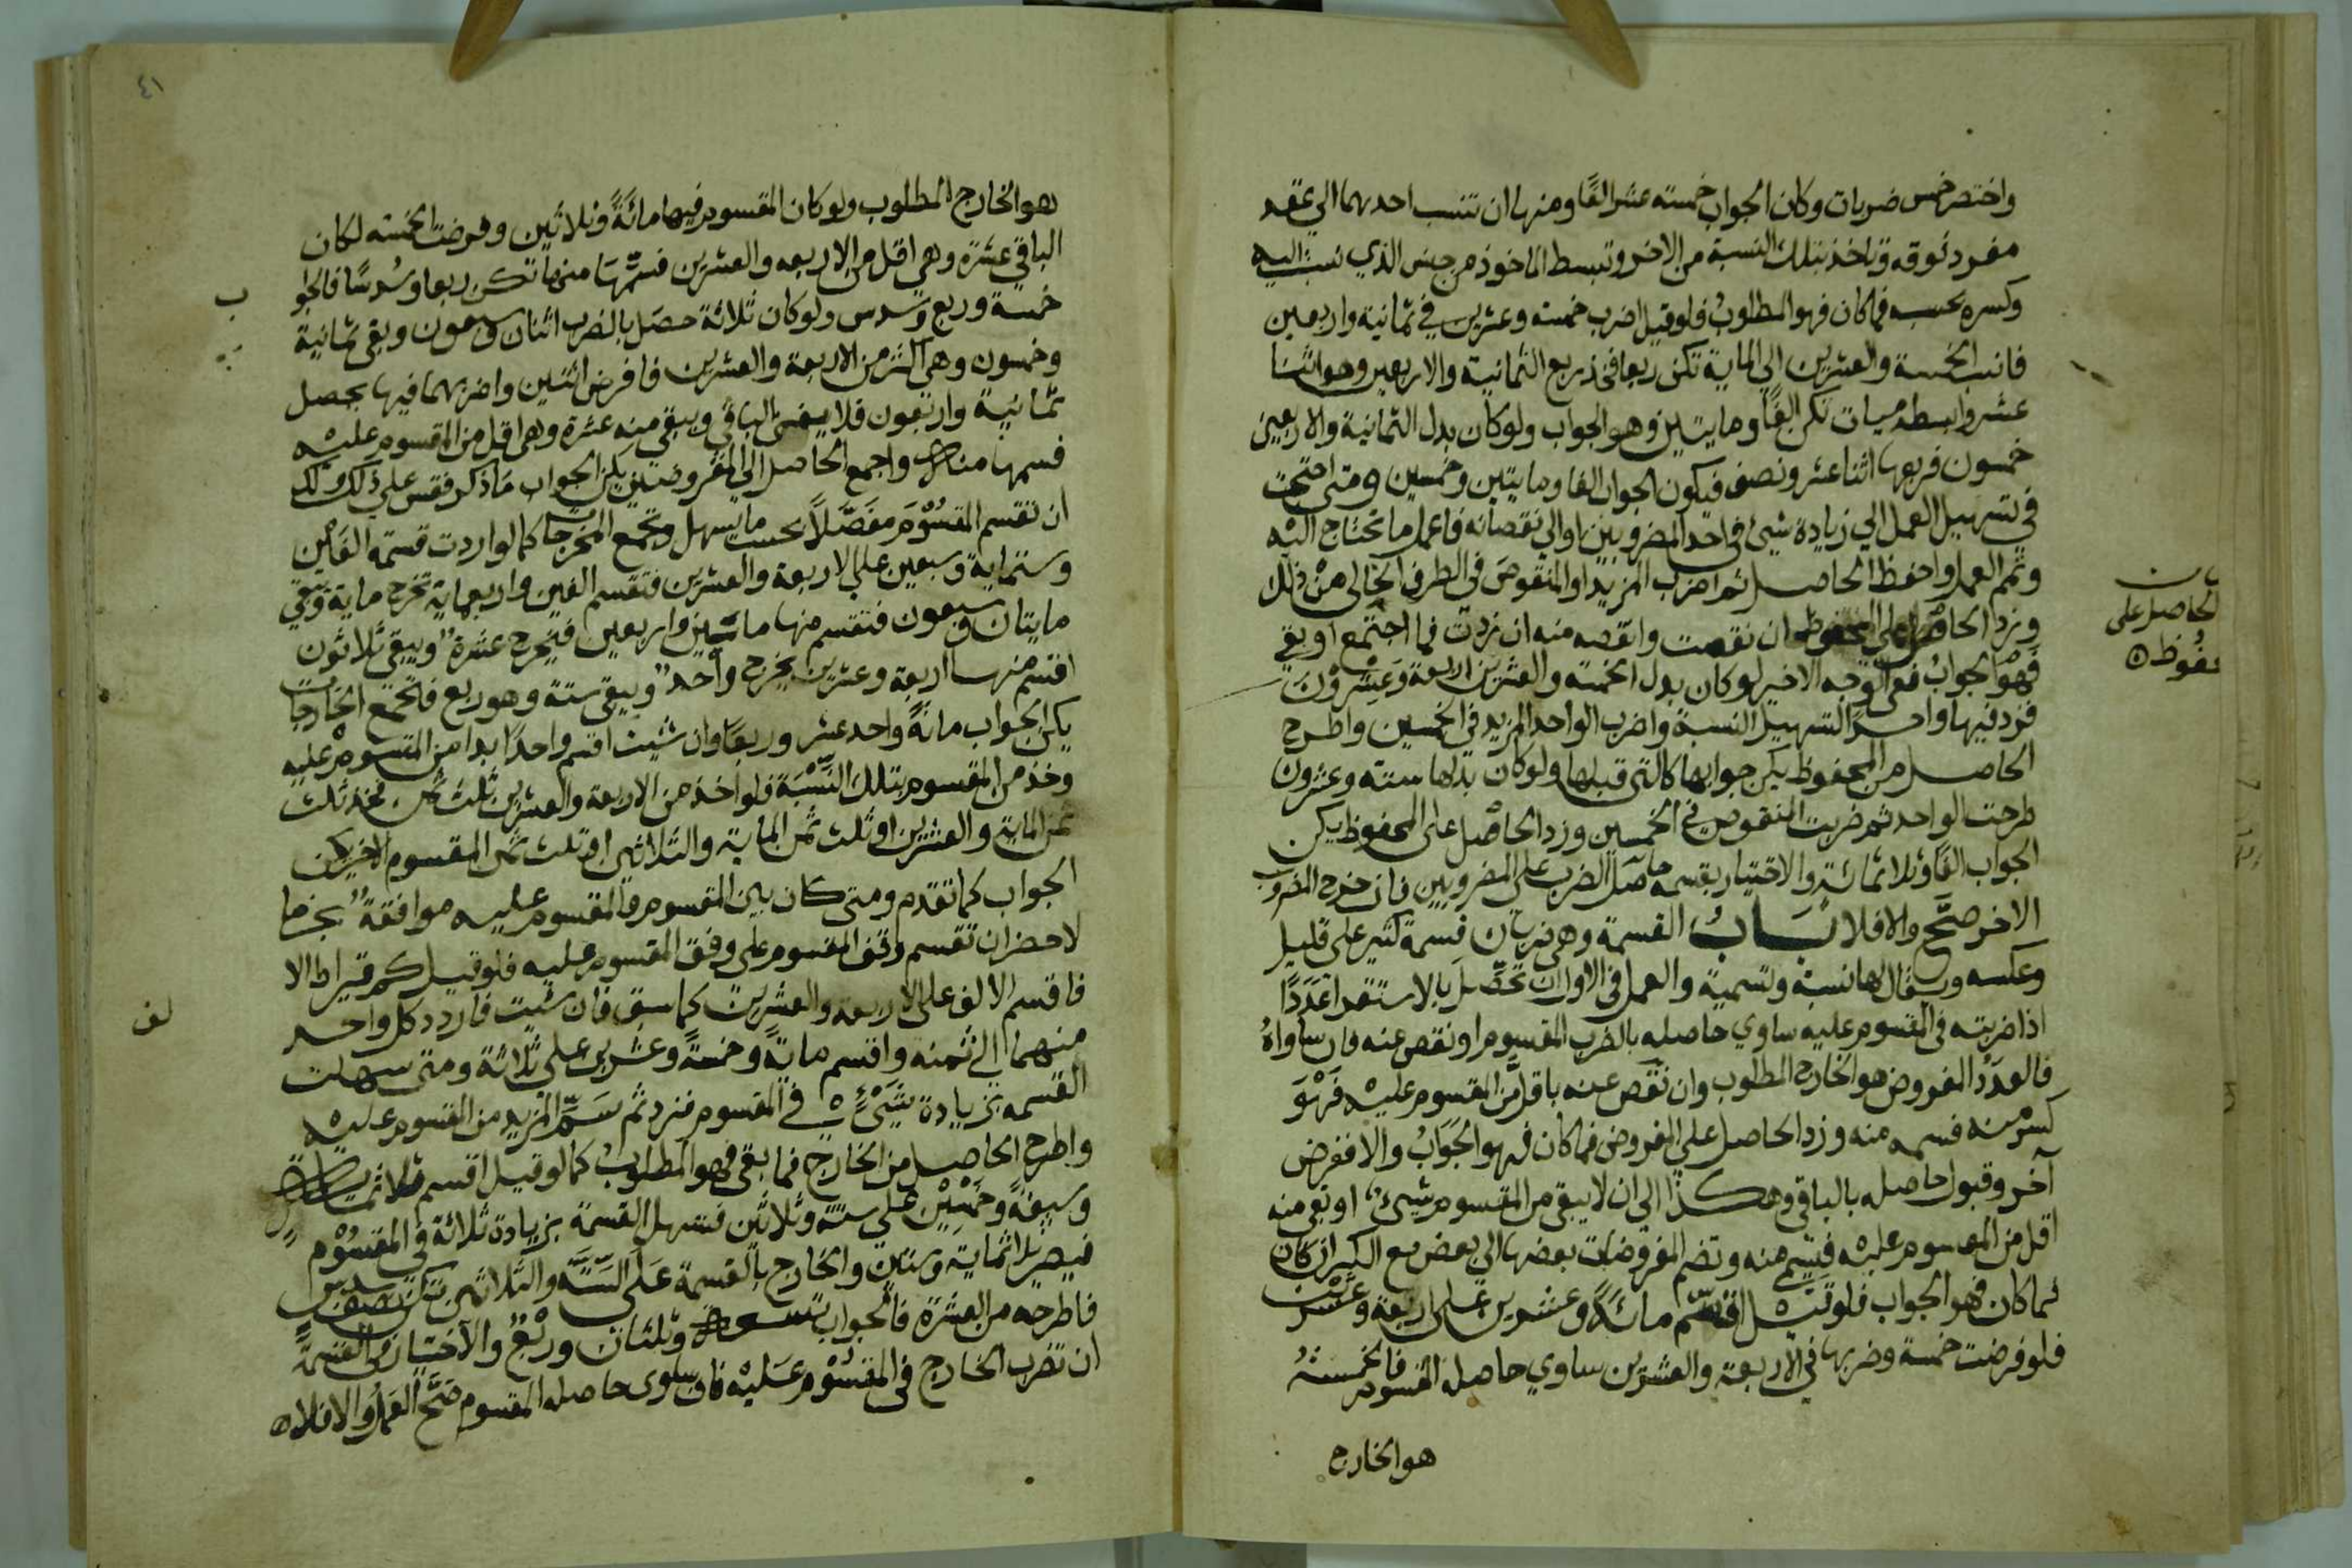 واختصر خمس ضربات وكان الجواب خمسته عشر الفًا ومنها ان تنسب احدهما الي عقد
مفرد فوقه وتاخذ بتلك النسبة من الاخر وتبسط الماخوذ من جنس الذي نسبت اليه
وكسره بحسبه فما كان فهو المطلوبُ فلو قيل اضرب خمسته وعشرين في ثمانية واربعين
فانسب الخمسة والعشرين الي الماية تكن ربعا فخذ ربع الثمانية والاربعين وهو اثنا
عشر وابسطه ميات تكن الفًا ومايتين وهو الجواب ولو كان بدل الثمانية والاربعين
خمسون فربعها اثنا عشر ونصف فيكون الجواب الفا ومايتين وخمسين ومتى احتجت
في تسهيل العمل الي زيادة شيئ في احد المضروبين او الي نقصانه فاعمل ما تحتاج اليه
وتمم العمل واحفظ الحاصل ثم اضرب المزيد او المنقوص في الطرف الخالى من ذلك
وزد الحاصل على المحفوظ ان نقصت وانقصه منه ان زدت فما اجتمع او بقي
فهو الجوابُ ففي الوجه الاخير لو كان بدل الخمسته والعشرين اربعة وعشرون
فزد فيها واحدًا لتسهيل النسبة واضرب الواحد المزيد في الخمسين واطرح
الحاصل من المحفوظ يكن جوابها كالتي قبلها ولو كان بدلها ستة وعشرون
طرحت الواحد ثم ضربت المنقوص في الخمسين وزد الحاصل على المحفوظ يكن
الجواب الفًا وثلاثمائةٍ والاختيار بقسمه حاصل الضرب على المضروبين فان خرج المضروب
الاخر صحَّ والا فلا بَابُ القسمة وهي ضربان قسمة كثير على قليل
وعكسه ويقال لها نسبة وتسمية والعمل في الاول ان تحصّل بالاستقرا عَدَدًا
اذا ضربته في المقسوم عليه ساوي حاصله بالضرب المقسوم او نقص عنه فان ساواهُ
فالعدَدُ المفروض هو الخارج المطلوب وان نقص عنه باقل من المقسوم عليْه فهْوَ
كسرٌ منه فسمه منه وزد الحاصل علي المفروض فما كان فهو الجَوابُ والا ففرض
آخر وقبول حاصله بالباقي وهكذا الى ان لا يبقى من المقسوم شيئ او بقي منه
اقل من المقسوم عليه فسَمِّ منه وتضم المفروضات بعضها الي بعض مع الكسر ان كان
فما كان فهو الجواب فلو قيل اقسم مائةً وعشرين على اربعة وعشرين
فلو فرضت خمسة وضربها في الاربعة والعشرين ساوي حاصله المقسوم فالخمسته
هو الخارج
الحاصل على
هو الخارج المطلوب ولو كان المقسوم فيها مائةً وثلاثين وفرضت الخمسته لكان
الباقي عشرة وهي اقل من الاربعه والعشرين فسمّها منها تكن ربعا وسُدسًا فالجوا
ب
خمسة وربع وسدس ولو كان ثلاثة حصَل بالضرب اثنان وسبعون وبقي ثمانية
وخمسون وهي اكثر من الاربعة والعشرين فافرض اثنين واضربهما فيها يحصل
ثمانية واربعون فلا يفني الباقي ويبقى منه عشرة وهي اقل من المقسوم عليْه
فسمها منه واجمع الحاصل الي المفروضتين يكن الجواب ما ذكر فقس على ذلك ولك
ان تقسم المقسُوْمَ مفَصَّلاً بحسب ما يسهل وتجمع المخرجات كما لو اردت قسمة الفَاْين
وستماية وسبعين على الاربعة والعشرين فتقسم الفين واربعماية تخرج ماية ويبقي
مايتان وسبعون فتقسم منها مائتين واربعين فيخرج عشرة ويبقى ثلاثون
اقسم منها اربعة وعشرين يخرج واحد ويبقى ستة وهو ربع فاجمع الخارجات
يكن الجواب مائةً واحد عشر وربعًا وان شئت اقسم واحدًا ابدا من المقسوم عليه
وخذ من المقسوم بتلك النّسْبَة فلو اخذ من الاربعة والعشرين ثلث ثمن فخذ ثلث
ثمن الماية والعشرين او ثلث ثمن الماية والثلاثين او ثلث ثمن المقسوم الاخير يكن
الجواب كما تقدم ومتى كان بين المقسوم والمقسوم عليه موافقةٌ بجزء فا
لاخصر ان تقسم وفق المقسوم على وفق المقسوم عليه فلو قيل كم قيراط الا
لف
فاقسم الالف على الاربعة والعشرين كما سبق فان شئت فاردد كل واحد
منهما الي ثمنه واقسم مايةً وخمسةً وعشرين علي ثلاثة ومتى سهلت
القسمه بزيادة شَيْئٍ في المقسوم فزد ثم سَمِّ المزيد من المقسوم عليه
واطرح الحاصل من الخارج فما بقى فهو المطلوبُ كما لو قيل اقسم ثلاثماية
وسبعةً وخمسِيْن علي ستةٍ وثلاثين فتسهل القسمة بزيادة ثلاثة في المقسُوْم
فيصير ثلاثماية وستين والخارج بالقسمة عَلى السِّتَّه والثلاثين تكن نصف سدس
فاطرحه من العشرة فالجواب تسعة وثلثان ورُبْعٌ والاختيار في القسمة
ان تضرب الخارج في المقسُوْم عَليْه فان ساوى حاصله المقسوم صَحَّ العَمَلُ والا فلا
٤١